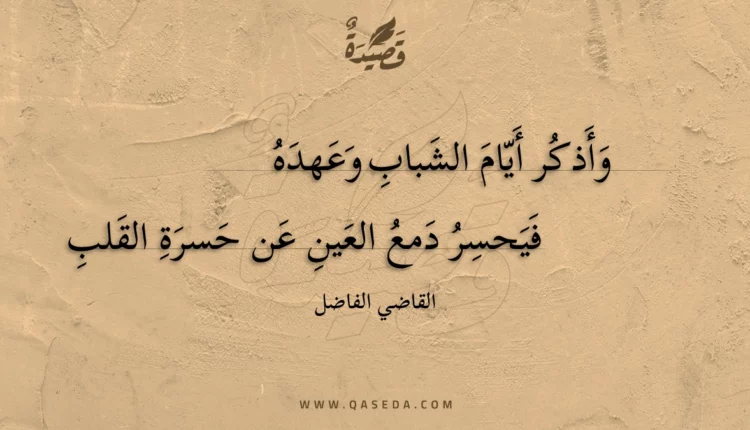 قَصِيْدَةٌ
وَأَذكُر أَيّامَ الشَبابِ وَعَهدَهُ
فَيَحسِرُ دَمعُ العَينِ عَن حَسرَةِ القَلبِ
القاضي الفاضل
WWW.QASEDA.COM